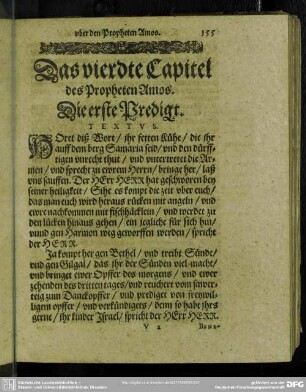 vber den Propheten Amos. 155
Das vierdte Capitel
des Propheten Amos.
Die erste Predigt.
TEXTVS.
HOret diß Wort / ihr fetten Kühe / die ihr
auff dem berg Samaria seid / vnd den dürff-
tigen vnrecht thut / vnd vntertretet die Ar-
men / vnd sprecht zu ewern Herrn / bringe her / laß
vns sauffen. Der HErr HERR hat geschworen bey
seiner heiligkeit / Sihe es kompt die zeit vber euch /
das man euch wird heraus rücken mit angeln / vnd
ewre nachkommen mit fischhäcklein / vnd werdet zu
den lücken hinaus gehen / ein jegliche für sich hin /
vnnd gen Harmon weg geworffen werden / spricht
der HERR.
Ja kompt her gen Bethel / vnd treibt Sünde /
vnd gen Gilgal / das ihr der Sünden viel macht /
vnd bringet ewer Opffer des morgens / vnd ewer
zehenden des dritten tages / vnd reuchert vom sawer-
teig zum Danckopffer / vnd prediget von freywilli-
gem opffer / vnd verkündigets / denn so habt jhrs
gerne / jhr kinder Israel / spricht der HErr HERR.
V 2